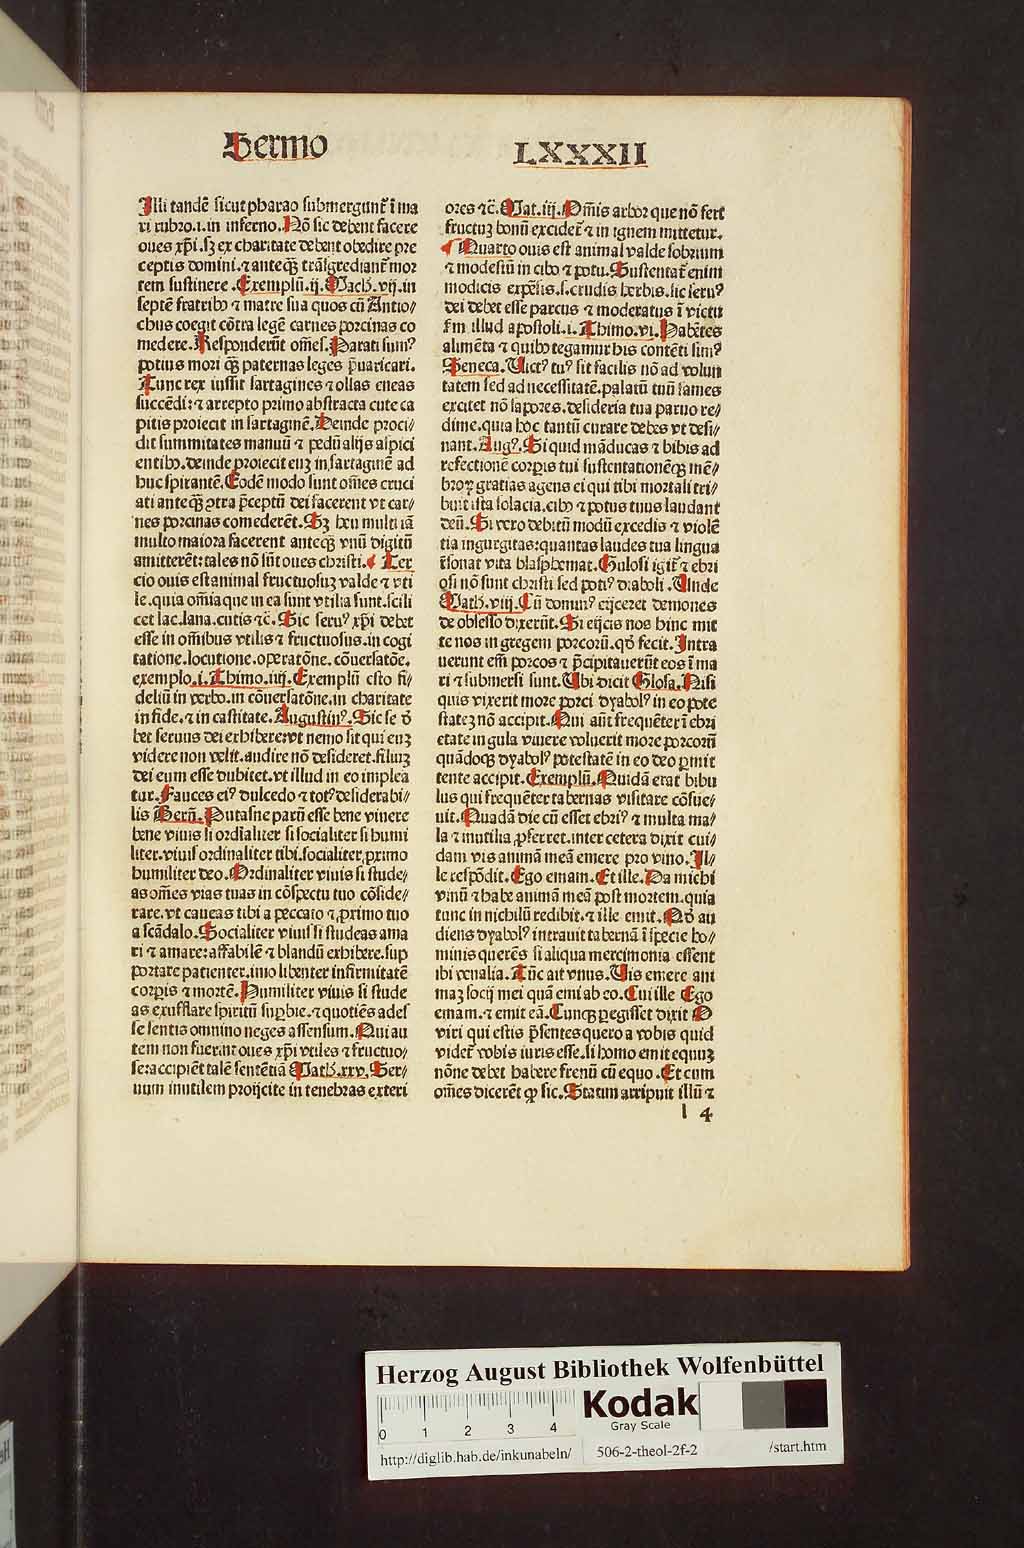 Sermo LXXXII
Illi tandē sicut pharao submergunt̄ ī ma
ri rubro.i.in inferno. Nō sic debent facere
oues xp̄i. sꝫ ex charitate debent obedire pre
ceptis domini. ⁊ anteqꝫ trāsgrediant̄ mor
tem sustinere. Exemplū.ij. Mach. vij. in
septē fratribꝰ ⁊ matre sua quos cū Antio⸗
chus coegit cōtra legē carnes porcinas co
medere. Responderūt oēs. Parati sumꝰ
potius mori qꝫ paternas leges p̄uaricari.
Tunc rex iussit sartagines ⁊ ollas eneas
succēdi: ⁊ arrepto primo abstracta cute ca
pitis proiecit in sartaginē. Deinde proci⸗
dit summitates manuū ⁊ pedū alijs aspici
entibꝰ. deinde proiecit euꝫ in sartaginē ad
huc spirantē. Eodē modo sunt om̄es cruci
ati anteqꝫ ꝯtra p̄ceptū dei facerent vt car⸗
nes porcinas comederēt. Sꝫ heu multi iā
multo maiora facerent anteqꝫ vnū digitū
amitterēt: tales nō sūt oues christi. Ter
cio ouis est animal fructuosuꝫ valde ⁊ vti
le. quia om̄ia que in ea sunt vtilia sunt. scili
cet lac. lana. cutis ⁊c̄. Sic seruꝰ xp̄i debet
esse in om̄ibus vtilis ⁊ fructuosus. in cogi
tatione. locutione. operatōne. cōuersatōe.
exemplo. i. Thimo. iiij. Exemplū esto fi⸗
deliū in verbo. in cōuersatōne. in charitate
in fide. ⁊ in castitate. Augustinꝰ. Sic se d̄
bet seruus dei exhibere: vt nemo sit qui euꝫ
videre non velit. audire nō desideret. filiuꝫ
dei eum esse dubitet. vt illud in eo implea
tur. Fauces eiꝰ dulcedo ⁊ totꝰ desiderabi⸗
lis Bern̄. Putasne parū esse bene viuere
bene viuis si ordīaliter si socialiter si humi
liter. viuis ordinaliter tibi. socialiter ꝓximo
humiliter deo. Ordinaliter viuis si stude⸗
as om̄es vias tuas in cōspectu tuo cōside⸗
rare. vt caueas tibi a peccato ⁊ ꝓximo tuo
a scādalo. Socialiter viuis si studeas ama
ri ⁊ amare: affabilē ⁊ blandū exhibere. sup
portare patienter. imo libenter infirmitatē
corꝑis ⁊ mortē. Humiliter viuis si stude
as exufflare spiritū suꝑbie. ⁊ quotiēs ades
se sentis omnino neges assensum. Qui au
tem non fuerint oues xp̄i vtiles ⁊ fructuo⸗
se: accipiēt talē sententiā Math. xxv. Ser⸗
uum inutilem proijcite in tenebras exteri
ores ⁊c̄. Mat. iij. Om̄is arbor que nō fert
fructuꝫ bonū excidet̄ ⁊ in ignem mittetur.
Quarto ouis est animal valde sobrium
⁊ modestū in cibo ⁊ potu. Sustentat̄ enim
modicis expēsis. s. crudis herbis. sic seruꝰ
dei debet esse parcus ⁊ moderatus ī victu
ẜm illud apostoli. i. Thimo. vi. Habētes
alimēta ⁊ quibꝰ tegamur his contēti simꝰ
Seneca. Victꝰ tuꝰ sit facilis nō ad volun
tatem sed ad necessitatē. palatū tuū fames
excitet nō sapores. desideria tua paruo re⸗
dime. quia hoc tantū curare debes vt desi⸗
nant. Augꝰ. Si quid māducas ⁊ bibis ad
refectionē corꝑis tui sustentationēqꝫ mē⸗
broꝝ gratias agens ei qui tibi mortali tri⸗
buit ista solacia. cibꝰ ⁊ potus tuus laudant
deū. Si vero debitū modū excedis ⁊ violē
tia ingurgitas: quantas laudes tua lingua
īsonat vita blasphemat. Gulosi igit̄ ⁊ ebri
osi nō sunt christi sed potiꝰ diaboli. Unde
Math. viij. Cū dominꝰ eijceret demones
de obsesso dixerūt. Si eijcis nos hinc mit
te nos in gregem porcorū. qd̄ fecit. Intra
uerunt em̄ porcos ⁊ p̄cipitauerūt eos ī ma
ri ⁊ submersi sunt. Ubi dicit Glosa. Nisi
quis vixerit more porci dyabolꝰ in eo pote
stateꝫ nō accipit. Qui aūt frequēter ī ebri
etate in gula viuere voluerit more porcorū
quādoqꝫ dyabolꝰ potestatē in eo deo ꝑmit
tente accipit. Exemplū. Quidā erat bibu
lus qui frequēter tabernas visitare cōsue⸗
uit. Quadā die cū esset ebriꝰ ⁊ multa ma⸗
la ⁊ inutilia ꝓferret. inter cetera dixit cui⸗
dam vis animā meā emere pro vino. Il⸗
le respōdit. Ego emam. Et ille. Da michi
vinū ⁊ habe animā meā post mortem. quia
tunc in nichilū redibit. ⁊ ille emit. Qd̄ au
diens dyabolꝰ intrauit tabernā ī specie ho⸗
minis querēs si aliqua mercimonia essent
ibi venalia. Tūc ait vnus. Uis emere ani
maꝫ socij mei quā emi ab eo. Cui ille Ego
emam. ⁊ emit eā. Cunqꝫ ꝑegisset dixit O
viri qui estis p̄sentes quero a vobis quid
videt̄ vobis iuris esse. si homo emit equuꝫ
nōne debet habere frenū cū equo. Et cum
om̄es dicerēt ꝙ sic. Statim arripuit illū ⁊
l 4
Herzog August Bibliothek Wolfenbüttel
0 1 2 3 4
Kodak
Gray Scale
http://diglib.hab.de/inkunabeln/ 506-2-theol-2f-2 /start.htm